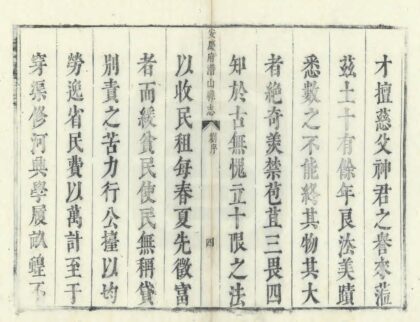 才擅慈父神君之譽來蒞
茲土十有餘年良法美蹟
悉數之不能終其物其大
者絶奇羡禁苞苴三畏四
知於古無愧立十限之法
安慶府潛山縣志 序 四
以收民租每春夏先徵富
者而緩貧民使民無稱貸
剜責之苦力行公擡以均
勞逸省民費以萬計至于
穿渠修河興學履畝蝗不